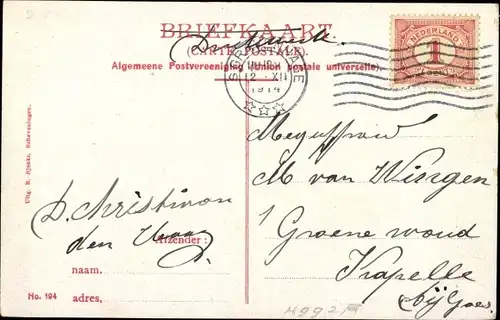 BRIEFKAART
(CARTE POSTALE)
Drukwerk.
Algemeene Postvereeniging (Union postale universelle).
NEDERLAND
1
CENT
2 XII
1914
Mejuffrouw
M van
1 Groene woud
Kapelle
bij Goes
D. Christiaan
den Haag
Afzender:
naam.
No. 194 adres,
Uitg. B. Sjouke, Scheveningen.
H992